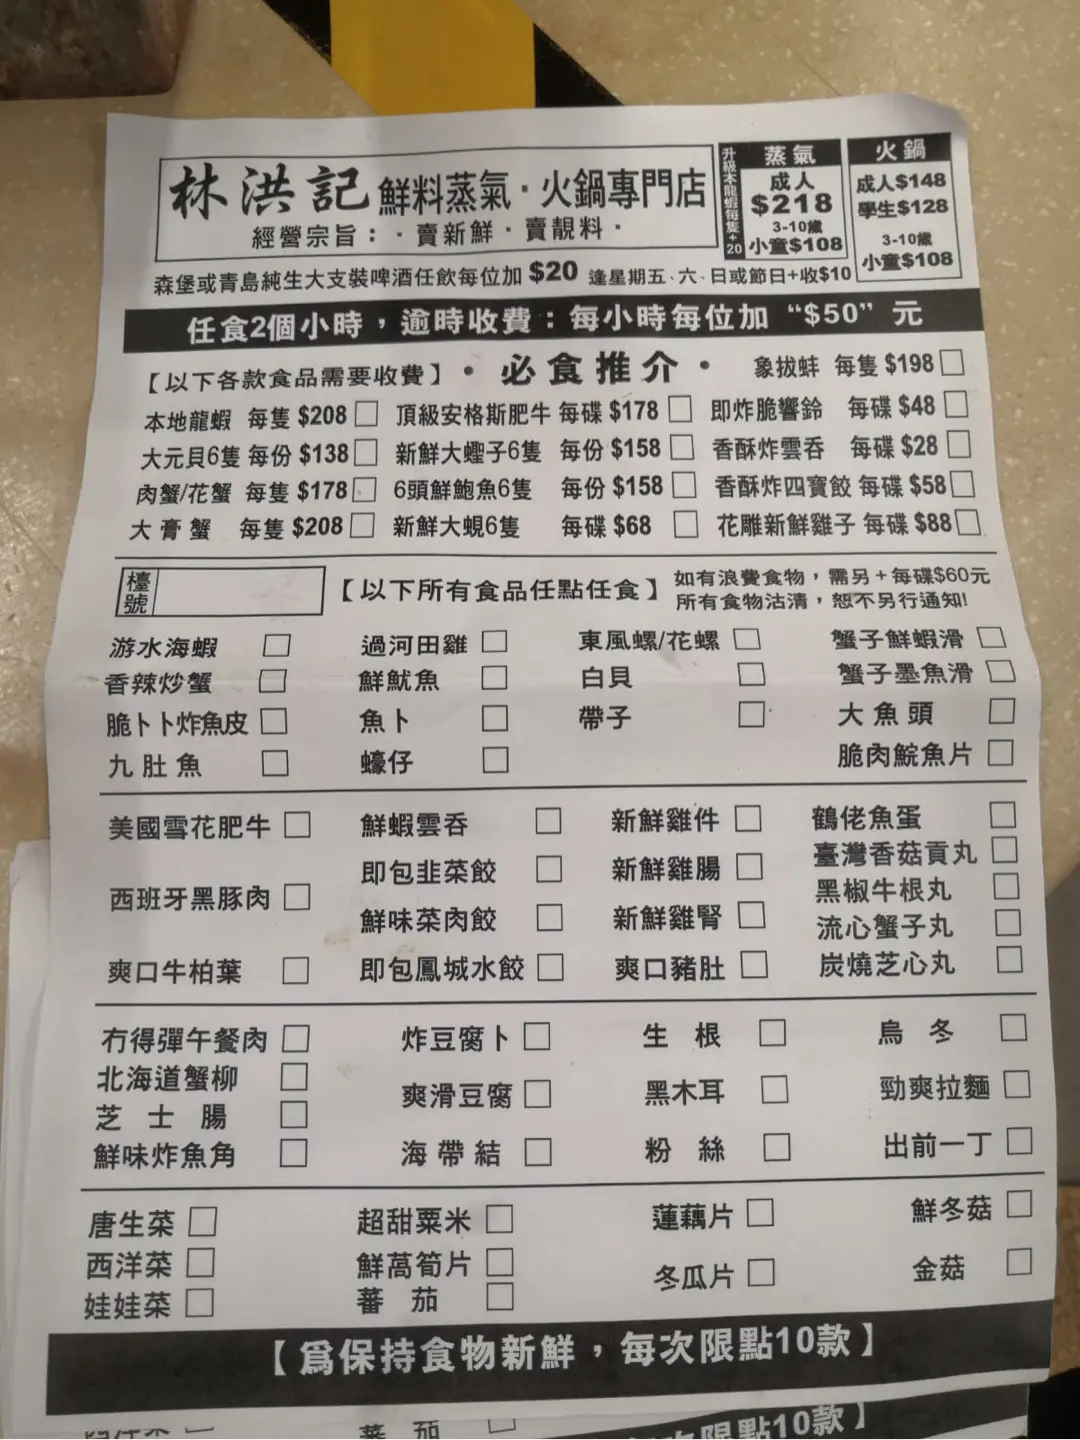 林洪記 鮮料蒸氣·火鍋專門店
經營宗旨：·賣新鮮·賣靚料·
升級本龍蝦每隻+20
蒸氣
成人
$218
3-10歲
小童$108
火鍋
成人$148
學生$128
3-10歲
小童$108
森堡或青島純生大支裝啤酒任飲每位加 $20 逢星期五、六、日或節日+收$10
任食2個小時，逾時收費：每小時每位加 “$50” 元
【以下各款食品需要收費】·必食推介· 象拔蚌 每隻 $198
本地龍蝦 每隻 $208 頂級安格斯肥牛 每碟 $178 即炸脆響鈴 每碟 $48
大元貝6隻 每份 $138 新鮮大蟶子6隻 每份 $158 香酥炸雲吞 每碟 $28
肉蟹/花蟹 每隻 $178 6頭鮮鮑魚6隻 每份 $158 香酥炸四寶餃 每碟 $58
大膏蟹 每隻 $208 新鮮大蜆6隻 每碟 $68 花雕新鮮雞子 每碟 $88
檯號 【以下所有食品任點任食】 如有浪費食物，需另+每碟$60元
所有食物沽清，恕不另行通知!
游水海蝦 過河田雞 東風螺/花螺 蟹子鮮蝦滑
香辣炒蟹 鮮魷魚 白貝 蟹子墨魚滑
脆卜卜炸魚皮 魚卜 帶子 大魚頭
九肚魚 蠔仔 脆肉鯇魚片
美國雪花肥牛 鮮蝦雲吞 新鮮雞件 鶴佬魚蛋
臺灣香菇貢丸
即包韭菜餃 新鮮雞腸
西班牙黑豚肉 黑椒牛根丸
鮮味菜肉餃 新鮮雞腎 流心蟹子丸
爽口牛柏葉 即包鳳城水餃 爽口豬肚 炭燒芝心丸
冇得彈午餐肉 炸豆腐卜 生根 烏冬
北海道蟹柳 爽滑豆腐 黑木耳 勁爽拉麵
芝士腸
鮮味炸魚角 海帶結 粉絲 出前一丁
唐生菜 超甜粟米 蓮藕片 鮮冬菇
西洋菜 鮮萵筍片 冬瓜片 金菇
娃娃菜 蕃茄
【爲保持食物新鮮，每次限點10款】
西洋菜 蕃茄
每次限點10款】